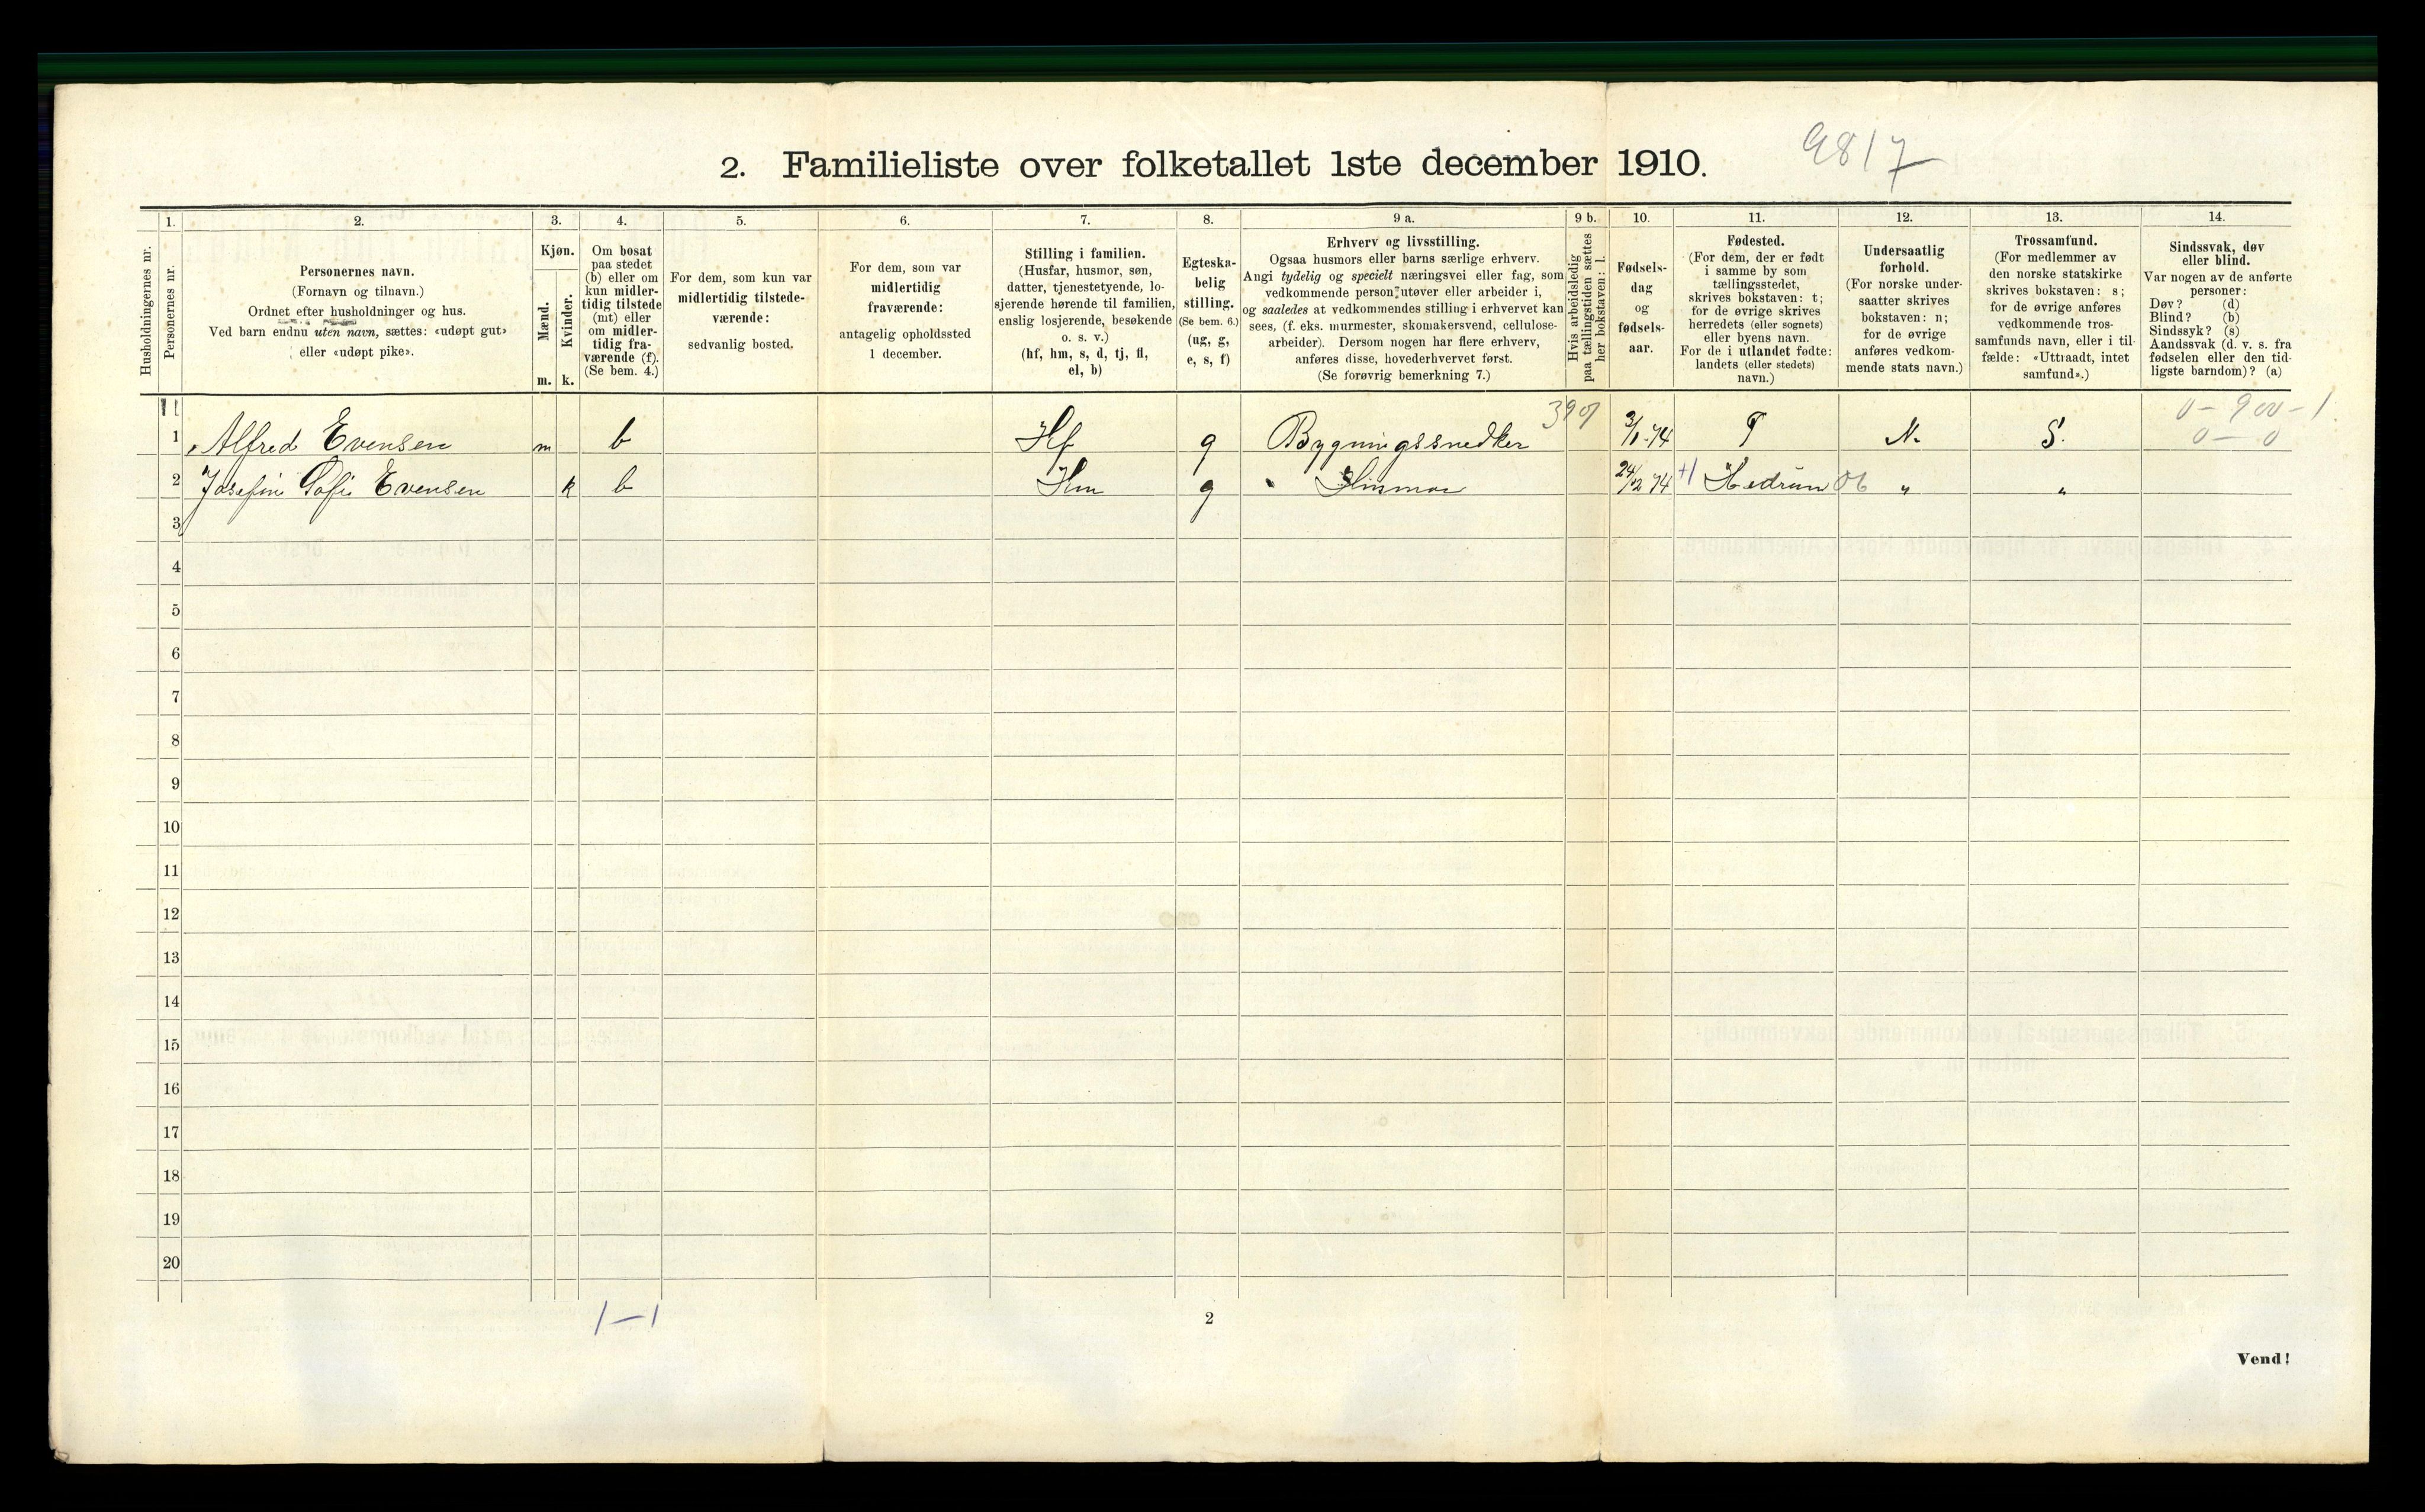 2. Familieliste over folketallet 1ste december 1910.
9817
1. 2. 3. 4. 5. 6. 7. 8. 9 a. 9 b. 10. 11. 12. 13. 14.
Husholdningernes nr.
Personernes nr.
Personernes navn.
(Fornavn og tilnavn.)
Ordnet efter husholdninger og hus.
Ved barn endnu uten navn, sættes: «udøpt gut»
eller «udøpt pike».
Kjøn.
Mænd.
Kvinder.
m. k.
Om bosat
paa stedet
(b) eller om
kun midler-
tidig tilstede
(mt) eller
om midler-
tidig fra-
værende (f).
(Se bem. 4.)
For dem, som kun var
midlertidig tilstede-
værende:
sedvanlig bosted.
For dem, som var
midlertidig
fraværende:
antagelig opholdssted
1 december.
Stilling i familien.
(Husfar, husmor, søn,
datter, tjenestetyende, lo-
sjerende hørende til familien,
enslig losjerende, besøkende
o. s. v.)
(hf, hm, s, d, tj, fl,
el, b)
Egteska-
belig
stilling.
(Se bem. 6.)
(ug, g,
e, s, f)
Erhverv og livsstilling.
Ogsaa husmors eller barns særlige erhverv.
Angi tydelig og specielt næringsvei eller fag, som
vedkommende person utøver eller arbeider i,
og saaledes at vedkommendes stilling i erhvervet kan
sees, (f. eks. murmester, skomakersvend, cellulose-
arbeider). Dersom nogen har flere erhverv,
anføres disse, hovederhvervet først.
(Se forøvrig bemerkning 7.)
Hvis arbeidsledig
paa tællingstiden sættes
her bokstaven: l.
Fødsels-
dag
og
fødsels-
aar.
Fødested.
(For dem, der er født
i samme by som
tællingsstedet,
skrives bokstaven: t;
for de øvrige skrives
herredets (eller sognets)
eller byens navn.
For de i utlandet fødte:
landets (eller stedets)
navn.)
Undersaatlig
forhold.
(For norske under-
saatter skrives
bokstaven: n;
for de øvrige
anføres vedkom-
mende stats navn.)
Trossamfund.
(For medlemmer av
den norske statskirke
skrives bokstaven: s;
for de øvrige anføres
vedkommende tros-
samfunds navn, eller i til-
fælde: «Uttraadt, intet
samfund».)
Sindssvak, døv
eller blind.
Var nogen av de anførte
personer:
Døv? (d)
Blind? (b)
Sindssyk? (s)
Aandssvak (d. v. s. fra
fødselen eller den tid-
ligste barndom)? (a)
0 - 900 - 1
1 Alfred Evensen m b Hf g Bygningssnedker 74 T N. S. 0 — 0
2 Josefine Sofie Evensen k b Hm g Husmor 24/12 74 Hedrum 06 " "
3
4
5
6
7
8
9
10
11
12
13
14
15
16
17
18
19
20
1—1
2
Vend!